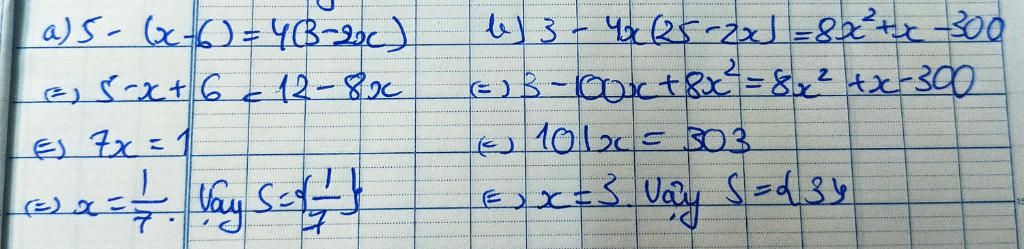 a) 5 - (x - 6) = 4(3 - 2x)
⇔ 5 - x + 6 = 12 - 8x
⇔ 7x = 1
⇔ x = 1/7. Vậy S = {1/7}
b) 3 - 4x(25 - 2x) = 8x² + x - 300
⇔ 3 - 100x + 8x² = 8x² + x - 300
⇔ 101x = 303
⇔ x = 3. Vậy S = {3}